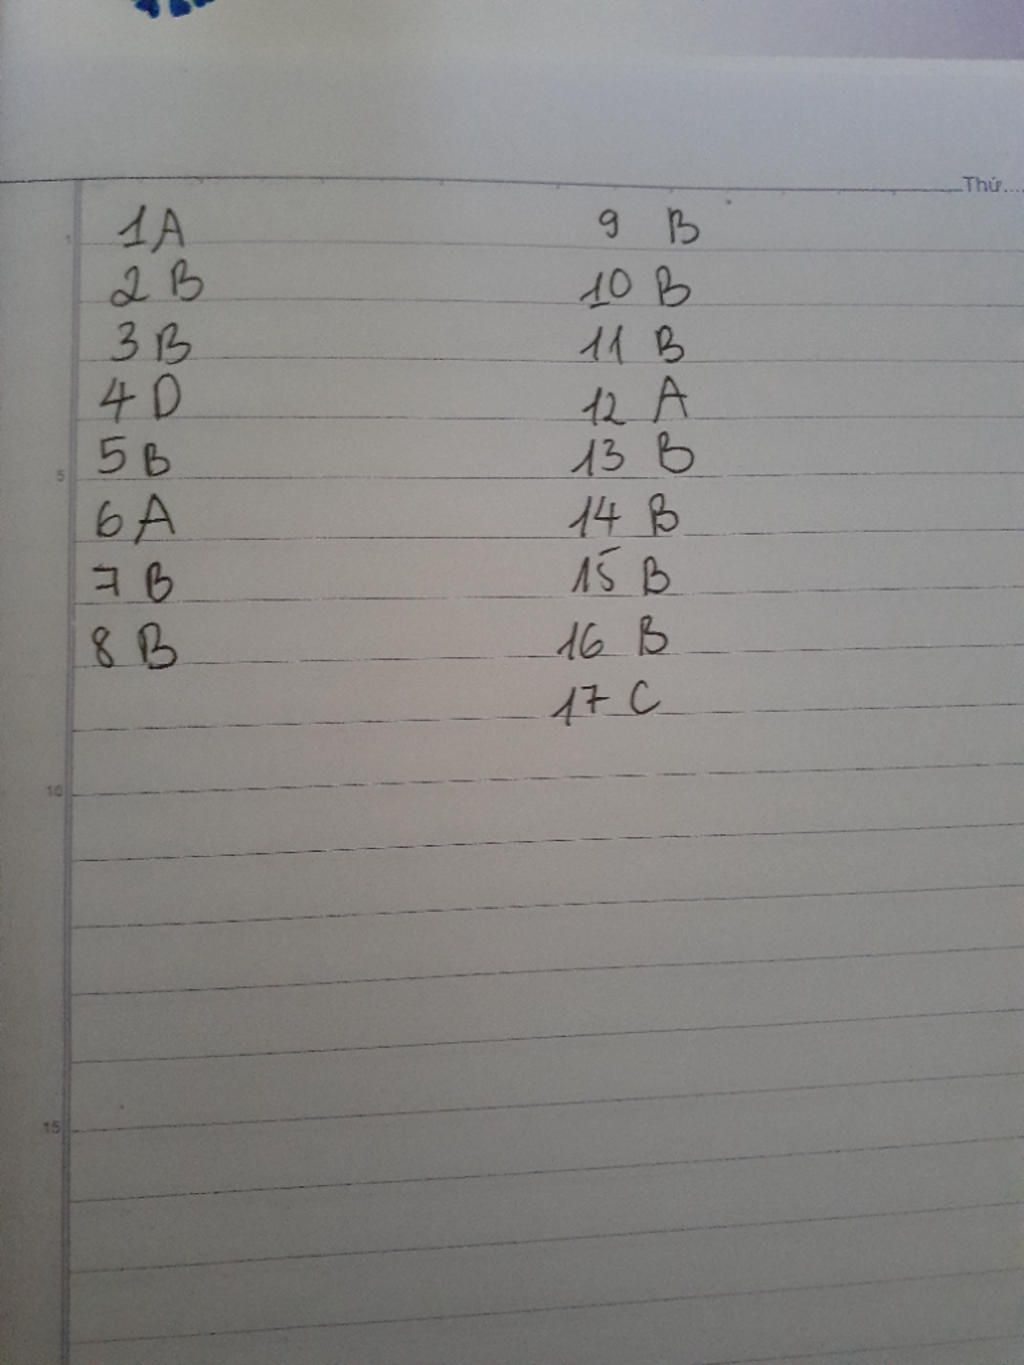 Thứ....
1A
2 B
3 B
4 D
5 B
6 A
7 B
8 B
9 B
10 B
11 B
12 A
13 B
14 B
15 B
16 B
17 C
1
5
10
15